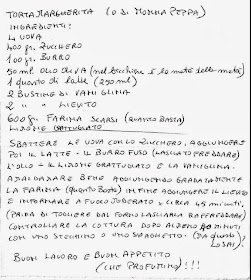 TORTA MARGHERITA (O DI MOMMA PEPPA)
INGREDIENTI:
4 UOVA
400 gr. ZUCCHERO
100 gr. BURRO
50 ml OLIO OLIVA (nel bicchiere è la metà della metà)
1 quarto di latte (250 ml)
2 BUSTINE DI VANIGLINA
2 " " LIEVITO
600 gr. FARINA SCARSI (QUANTO BASTA)
LIMONE GRATTUGIATO
SBATTERE LE UOVA CON LO ZUCCHERO, AGGIUNGERE
POI IL LATTE - IL BURRO FUSO (LASCIATO FREDDARE)
L'OLIO - IL LIMONE GRATTUGIATO E LA VANIGLINA.
AMALGAMARE BENE AGGIUNGENDO GRADATAMENTE
LA FARINA (quanto Basta) INFINE AGGIUNGERE IL LIEVITO
E INFORNARE A FUOCO MODERATO X CIRCA 45 minuti.
(PRIMA DI TOGLIERE DAL FORNO LASCIARLA RAFFREDDARE)
CONTROLLARE LA COTTURA DOPO ALMENO 40 MINUTI
CON UNO STECCHINO O UNO SPAGHETTO.
LO SAI)
BUON LAVORO E BUON APPETITO
(CHE PROFUMINO!!!)